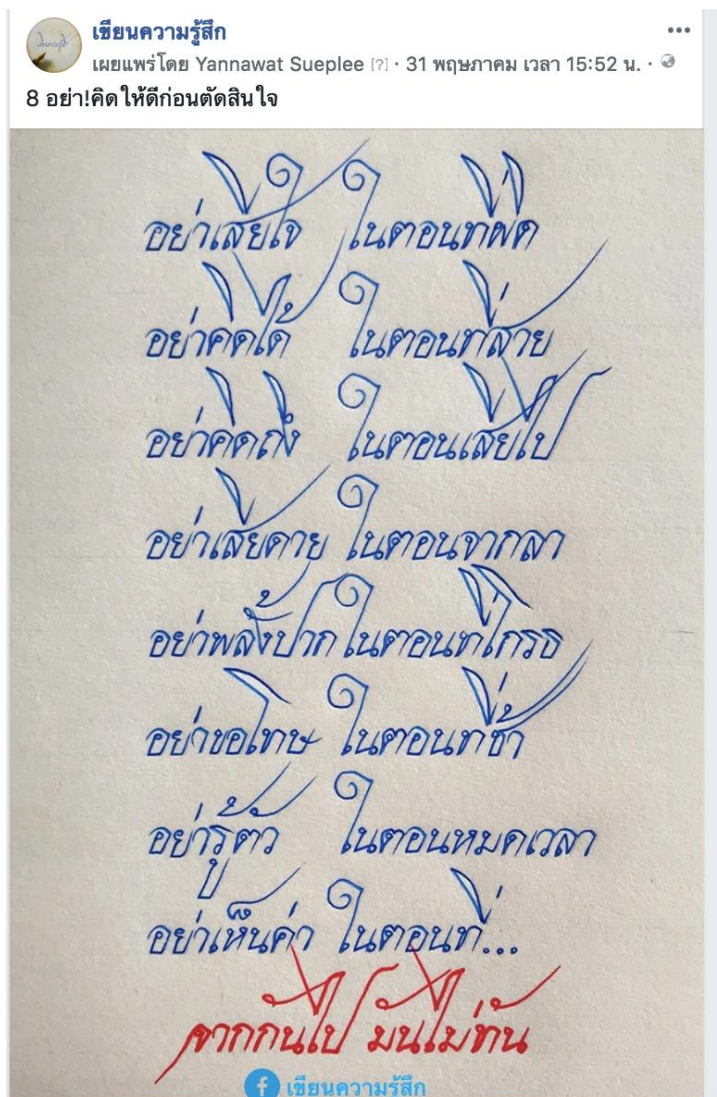 เขียนความรู้สึก
เผยแพร่โดย Yannawat Sueplee [?] · 31 พฤษภาคม เวลา 15:52 น. ·
8 อย่า!คิดให้ดีก่อนตัดสินใจ
อย่าเสียใจ ในตอนที่ผิด
อย่าคิดได้ ในตอนที่สาย
อย่าคิดถึง ในตอนเสียไป
อย่าเสียดาย ในตอนจากลา
อย่าพลั้งปาก ในตอนที่โกรธ
อย่าขอโทษ ในตอนที่ช้ำ
อย่ารู้ตัว ในตอนหมดเวลา
อย่าเห็นค่า ในตอนที่...
จากกันไป มันไม่ทัน
เขียนความรู้สึก